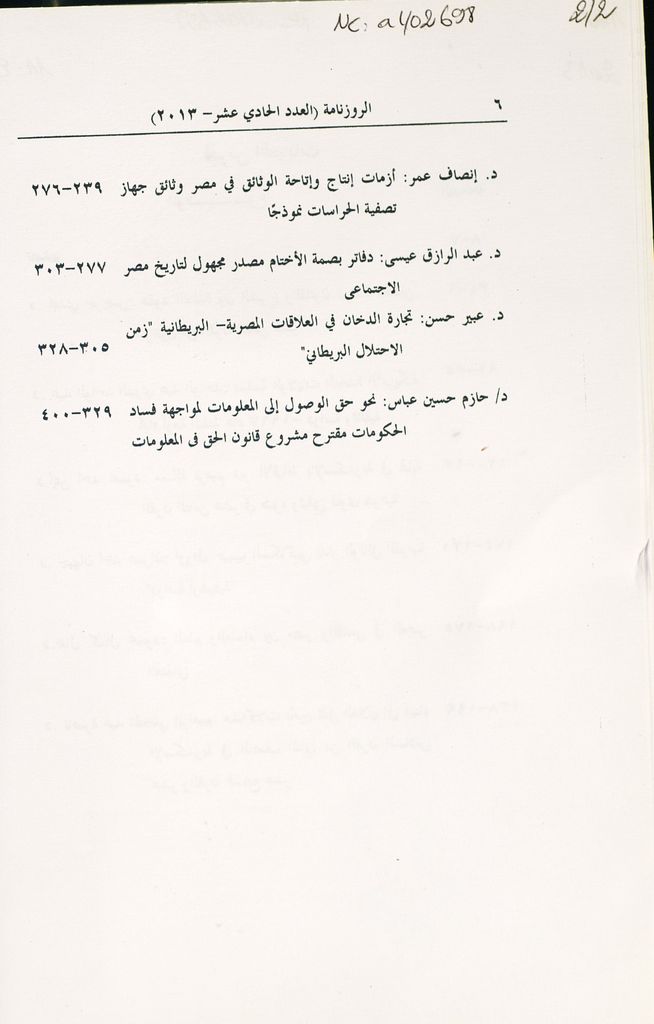 NC: a402698
2/2
٦ الروزنامة (العدد الحادي عشر– ٢٠١٣)
د. إنصاف عمر: أزمات إنتاج وإتاحة الوثائق في مصر وثائق جهاز ٢٣٩–٢٧٦
تصفية الحراسات نموذجًا
د. عبد الرازق عيسى: دفاتر بصمة الأختام مصدر مجهول لتاريخ مصر ٢٧٧–٣٠٣
الاجتماعى
د. عبير حسن: تجارة الدخان في العلاقات المصرية– البريطانية "زمن
الاحتلال البريطاني" ٣٠٥–٣٢٨
د/ حازم حسين عباس: نحو حق الوصول إلى المعلومات لمواجهة فساد ٣٢٩–٤٠٠
الحكومات مقترح مشروع قانون الحق فى المعلومات